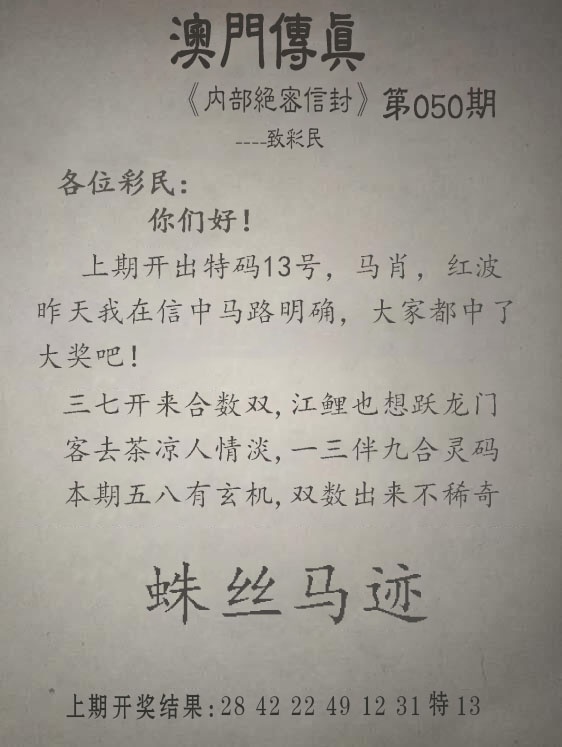 澳門傳眞
《内部絕密信封》第050期
----致彩民
各位彩民:
你们好!
上期开出特码13号，马肖，红波
昨天我在信中马路明确，大家都中了
大奖吧!
三七开来合数双,江鲤也想跃龙门
客去茶凉人情淡,一三伴九合灵码
本期五八有玄机,双数出来不稀奇
蛛丝马迹
上期开奖结果:28 42 22 49 12 31特13